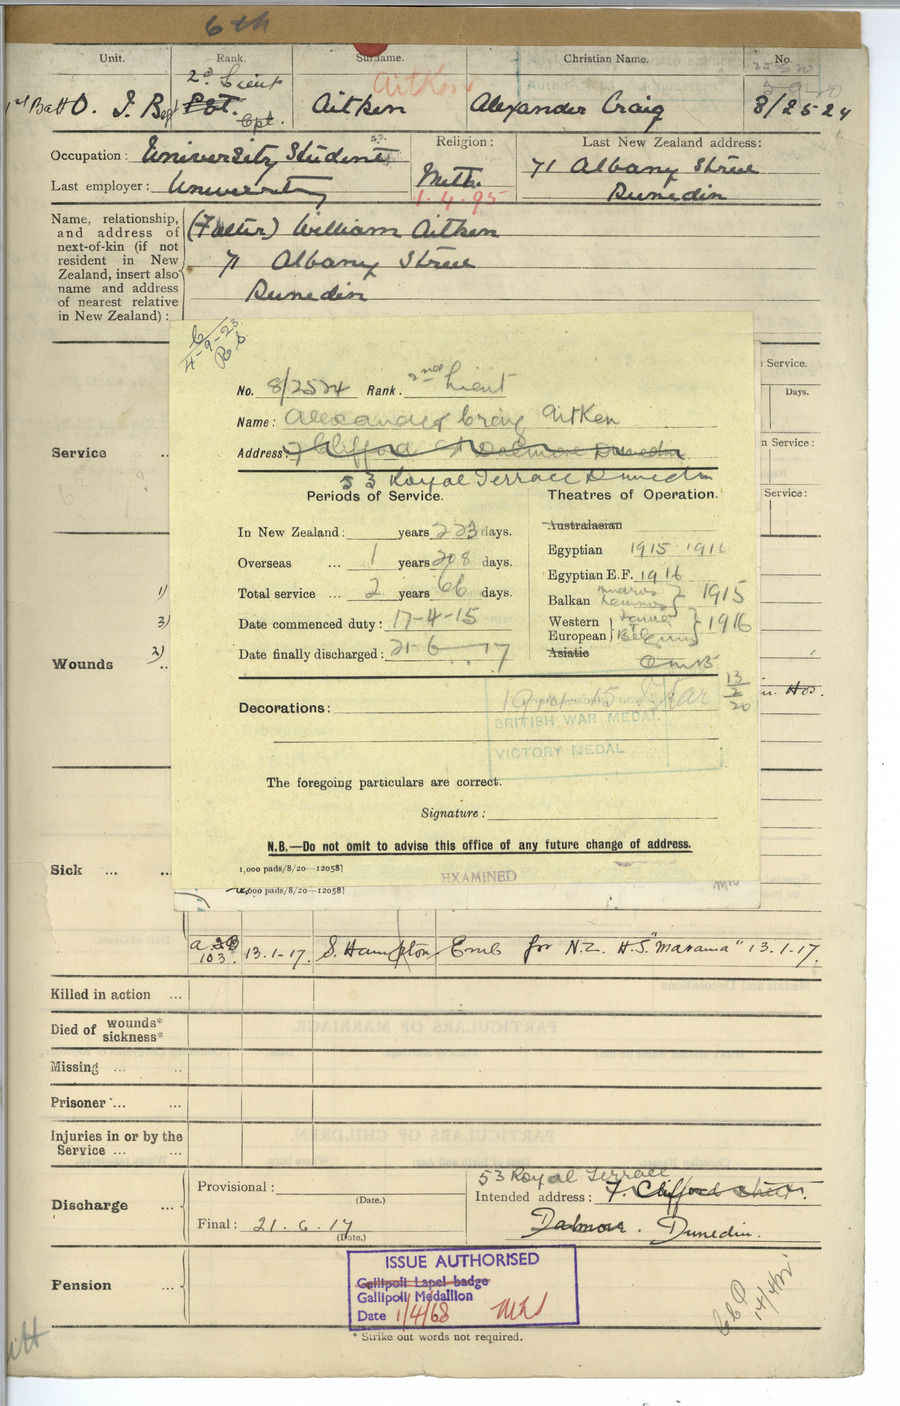 6th
Unit. Rank. Surname. Christian Name. No.
2nd Lieut Aitken
1st Batt O. I. Reg Cpt. Aitken Alexander Craig 8/2524
Occupation: University Student Religion: Last New Zealand address:
Last employer: University Meth. 71 Albany Street
1.4.95 Dunedin
Name, relationship, and address of next-of-kin (if not resident in New Zealand, insert also name and address of nearest relative in New Zealand):
(Father) William Aitken
71 Albany Street
Dunedin
4-9-23
No. 8/2524 Rank. 2nd Lieut
Name: Alexander Craig Aitken
Address: 7 Clifford St Dalmore Dunedin
53 Royal Terrace Dunedin
Periods of Service. Theatres of Operation.
In New Zealand: years 223 days. Australasian
Overseas ... 1 years 208 days. Egyptian 1915-1916
Total service ... 2 years 66 days. Egyptian E.F. 1916
Balkan Mudros Lemnos } 1915
Date commenced duty: 17-4-15 Western European } France Belgium } 1916
Date finally discharged: 21-6-17 Asiatic
13/2/20
Decorations: 1914-15 Star
BRITISH WAR MEDAL
VICTORY MEDAL
The foregoing particulars are correct.
Signature:
N.B.—Do not omit to advise this office of any future change of address.
1,000 pads/8/20—12058]
EXAMINED
000 pads/8/20—12058]
Service.
Days.
Service ... n Service:
Service:
1)
3)
Wounds 2) ...
Sick ... ...
103. 13.1.17. S. Hampton Emb for N.Z. H.S "Marama" 13.1.17.
Killed in action ...
Died of wounds* sickness*
Missing ... ...
Prisoner ... ...
Injuries in or by the Service ... ...
Discharge ... Provisional: (Date.) 53 Royal Terrace
Intended address: 7. Clifford Street.
Final: 21.6.17 (Date.) Dalmore. Dunedin.
Pension ...
ISSUE AUTHORISED
Gallipoli Lapel badge
Gallipoli Medallion
Date 1/4/68
* Strike out words not required.